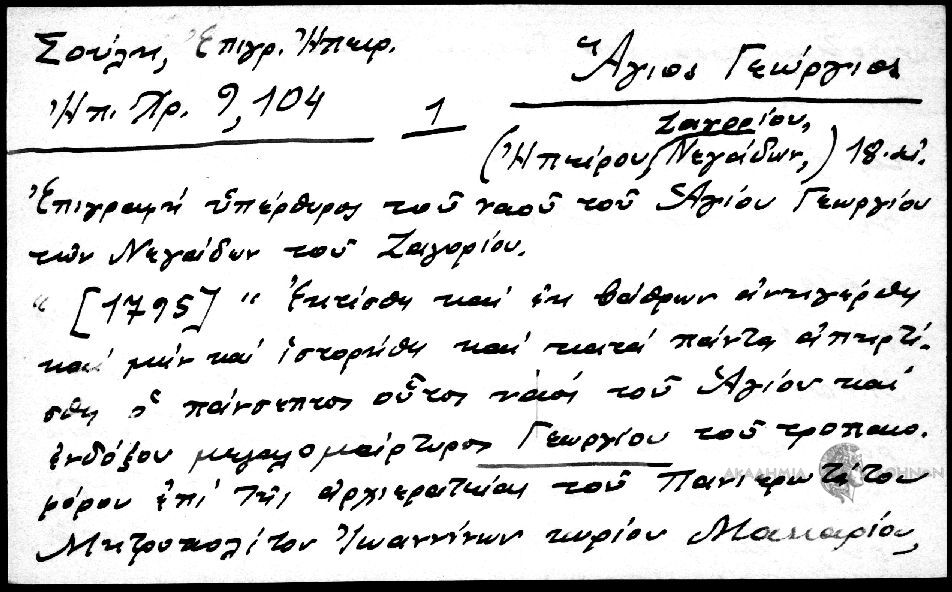 Σούλη, Ἐπιγρ. Ἠπειρ.
Ἅγιος Γεώργιος
Ἠπ. Χρ. 9, 104
1
Ζαγορίου,
(Ἠπείρου, Νεγάδων,) 18. αἰ.
Ἐπιγραφή ὑπέρθυρος τοῦ ναοῦ τοῦ Ἁγίου Γεωργίου
τῶν Νεγάδων τοῦ Ζαγορίου.
" [1795] " Ἐκτίσθη καί ἐκ βάθρων ἀνηγέρθη
καί μήν καί ἱστορήθη καί κατά πάντα ἀπηρτί-
σθη ὁ πάνσεπτος οὗτος ναός τοῦ Ἁγίου καί
ἐνδόξου μεγαλομάρτυρος Γεωργίου τοῦ τροπαιο-
φόρου ἐπί τῆς ἀρχιερατείας τοῦ Πανιερωτάτου
Μητροπολίτου Ἰωαννίνων κυρίου Μακαρίου,
ΑΚΑΔΗΜΙΑ ΑΘΗΝΩΝ